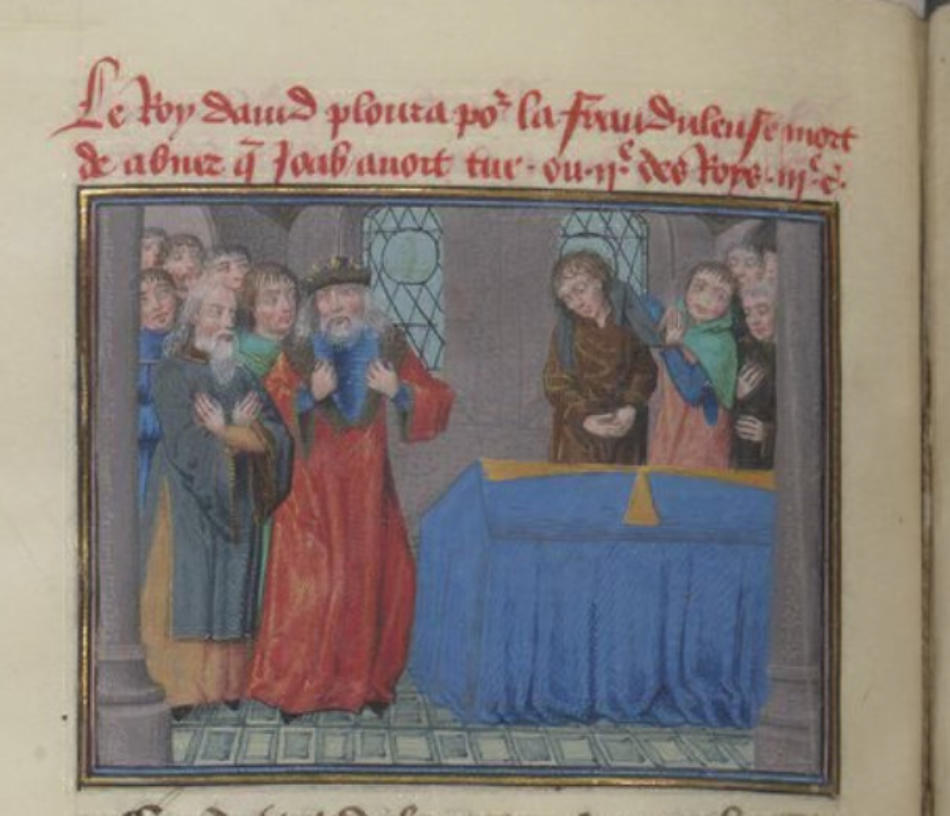 Le Roy dauid ploura por la frauduleuse mort
de abner q̃ Joab auoit tue · ou · ijᵉ des Roys · iijᵉ c̃ ·